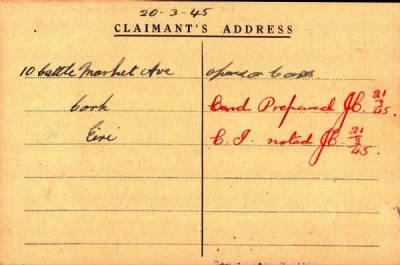 20-3-45
CLAIMANT'S ADDRESS
10 Cattle Market Ave
Cork
Eire
Card Prepared JC 21/3/45.
C. I. noted JC 21/3/45.